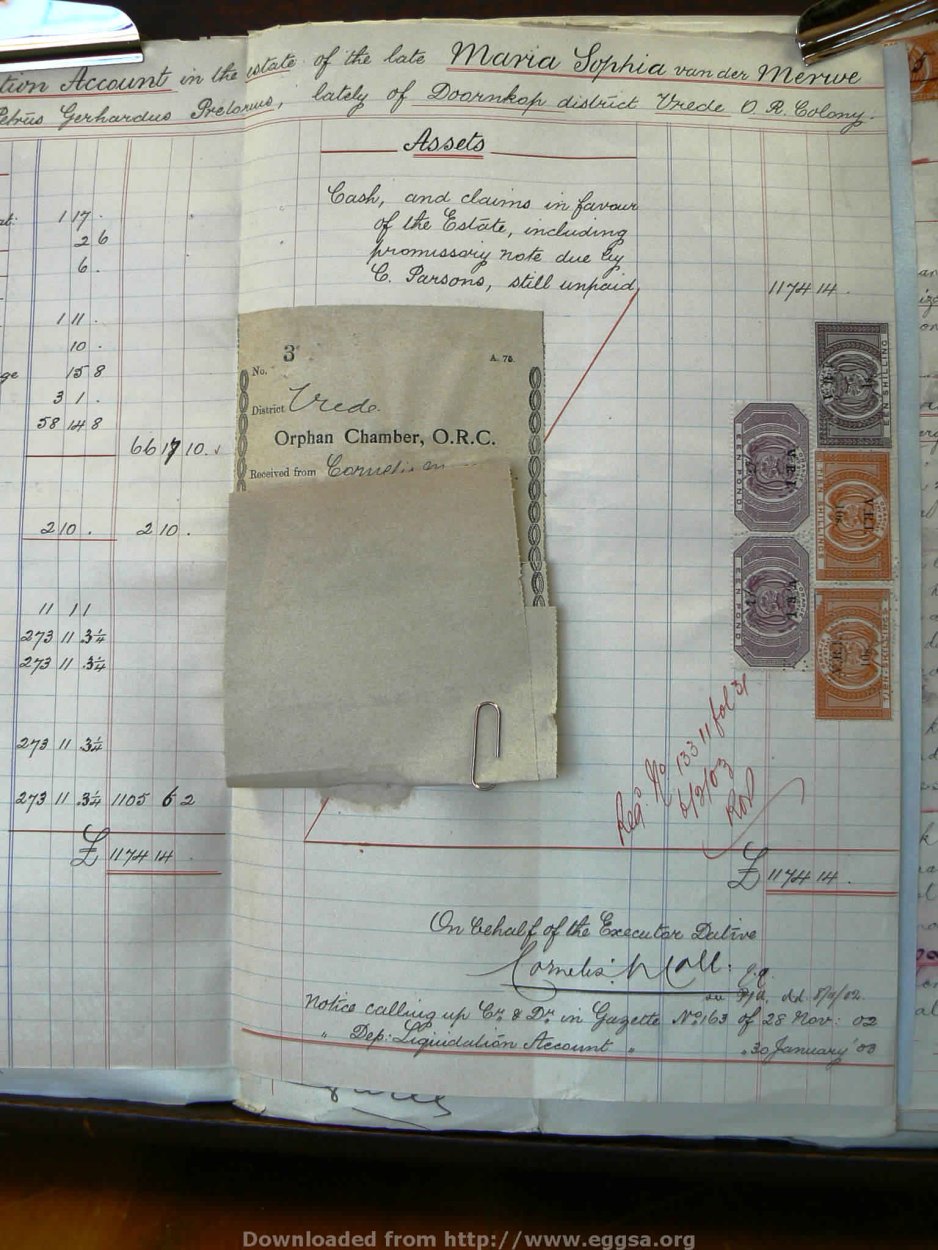 tion Account in the estate of the late Maria Sophia van der Merwe
Petrus Gerhardus Pretorius, lately of Doornkop district Vrede O. R. Colony.
Assets
Cash, and claims in favour
of the Estate, including
promissory note due by
C. Parsons, still unpaid 1174 14 .
1 17 .
2 6
6 .
1 11 .
10 .
15 8
3 1 .
58 14 8
66 17 10 .
2 10 . 2 10 .
11 11
273 11 3¼
273 11 3¼
273 11 3¼
273 11 3¼ 1105 6 2
£ 1174 14
No. 3 A. 75.
District Vrede.
Orphan Chamber, O.R.C.
Received from
EEN SHILLING
EEN POND
TIEN SHILLINGS
EEN POND
TIEN SHILLINGS
V.R.I.
Reg. No 13311 fol 31
6/3/03
£ 1174 14 .
On behalf of the Executor Dative
Cornelis Moll. q.q.
Notice calling up Cr. & Dr. in Gazette No. 163 of 28 Nov: 02
" Dep: Liquidation Account " " 30 January '03
Downloaded from http://www.eggsa.org